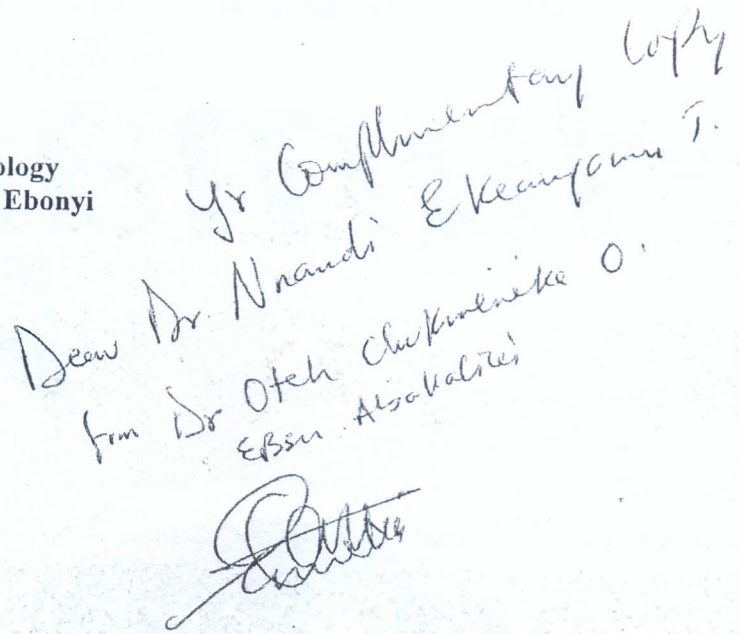 ology
Ebonyi
Yr Complimentary Copy
Dear Dr Nnamdi Ekeanyanwu T.
from Dr Oteh Chukwuemeka O.
EBSU Abakaliki